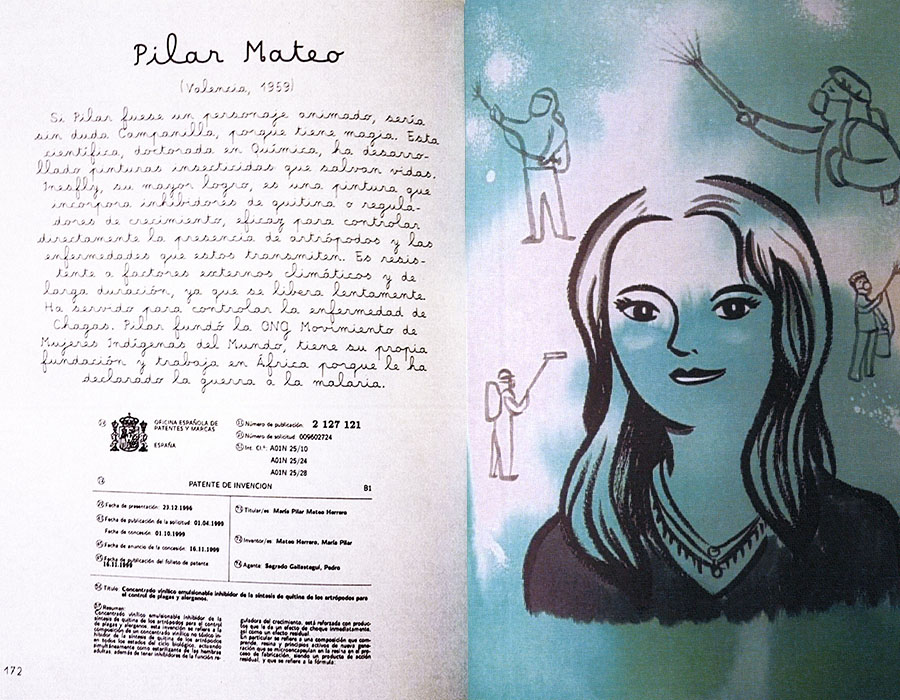 Pilar Mateo
(Valencia, 1959)
Si Pilar fuese un personaje animado, sería
sin duda Campanilla, porque tiene magia. Esta
científica, doctorada en Química, ha desarro-
llado pinturas insecticidas que salvan vidas.
Inesfly, su mayor logro, es una pintura que
incorpora inhibidores de quitina o regula-
dores de crecimiento, eficaz para controlar
directamente la presencia de artrópodos y las
enfermedades que estos transmiten. Es resis-
tente a factores externos climáticos y de
larga duración, ya que se libera lentamente.
Ha servido para controlar la enfermedad de
Chagas. Pilar fundó la ONG Movimiento de
Mujeres Indígenas del Mundo, tiene su propia
fundación y trabaja en África porque le ha
declarado la guerra a la malaria.
OFICINA ESPAÑOLA DE
PATENTES Y MARCAS
ESPAÑA
Número de publicación: 2 127 121
Número de solicitud: 009602724
Int. Cl.⁶: A01N 25/10
A01N 25/24
A01N 25/28
PATENTE DE INVENCION
B1
Fecha de presentación: 23.12.1996
Fecha de publicación de la solicitud: 01.04.1999
Fecha de concesión: 01.10.1999
Fecha de anuncio de la concesión: 16.11.1999
Fecha de publicación del folleto de patente
16.11.1999
Titular/es: María Pilar Mateo Herrero
Inventor/es: Mateo Herrero, María Pilar
Agente: Segrado Gallastegui, Pedro
Título: Concentrado vinílico emulsionable inhibidor de la síntesis de quitina de los artrópodos para
el control de plagas y alergenos.
Resumen:
Concentrado vinílico emulsionable inhibidor de la
síntesis de quitina de los artrópodos para el control
de plagas y alergenos, esta invención se refiere a la
composición de un concentrado vinílico no tóxico in-
hibidor de la síntesis de quitina de los artrópodos
en todos los estados del ciclo biológico, actuando
simultáneamente como esterilizante de las hembras
adultas, además de tener inhibidores de la función re-
guladora del crecimiento, está reforzada con produc-
tos que la da un efecto de choque inmediatamente,
así como un efecto residual.
En particular se refiere a una composición que com-
prende, resina y principios activos de nueva gene-
ración que se microencapsulan en la resina en el pro-
ceso de fabricación, siendo un producto de acción
residual, y que se refiere a la fórmula:
172